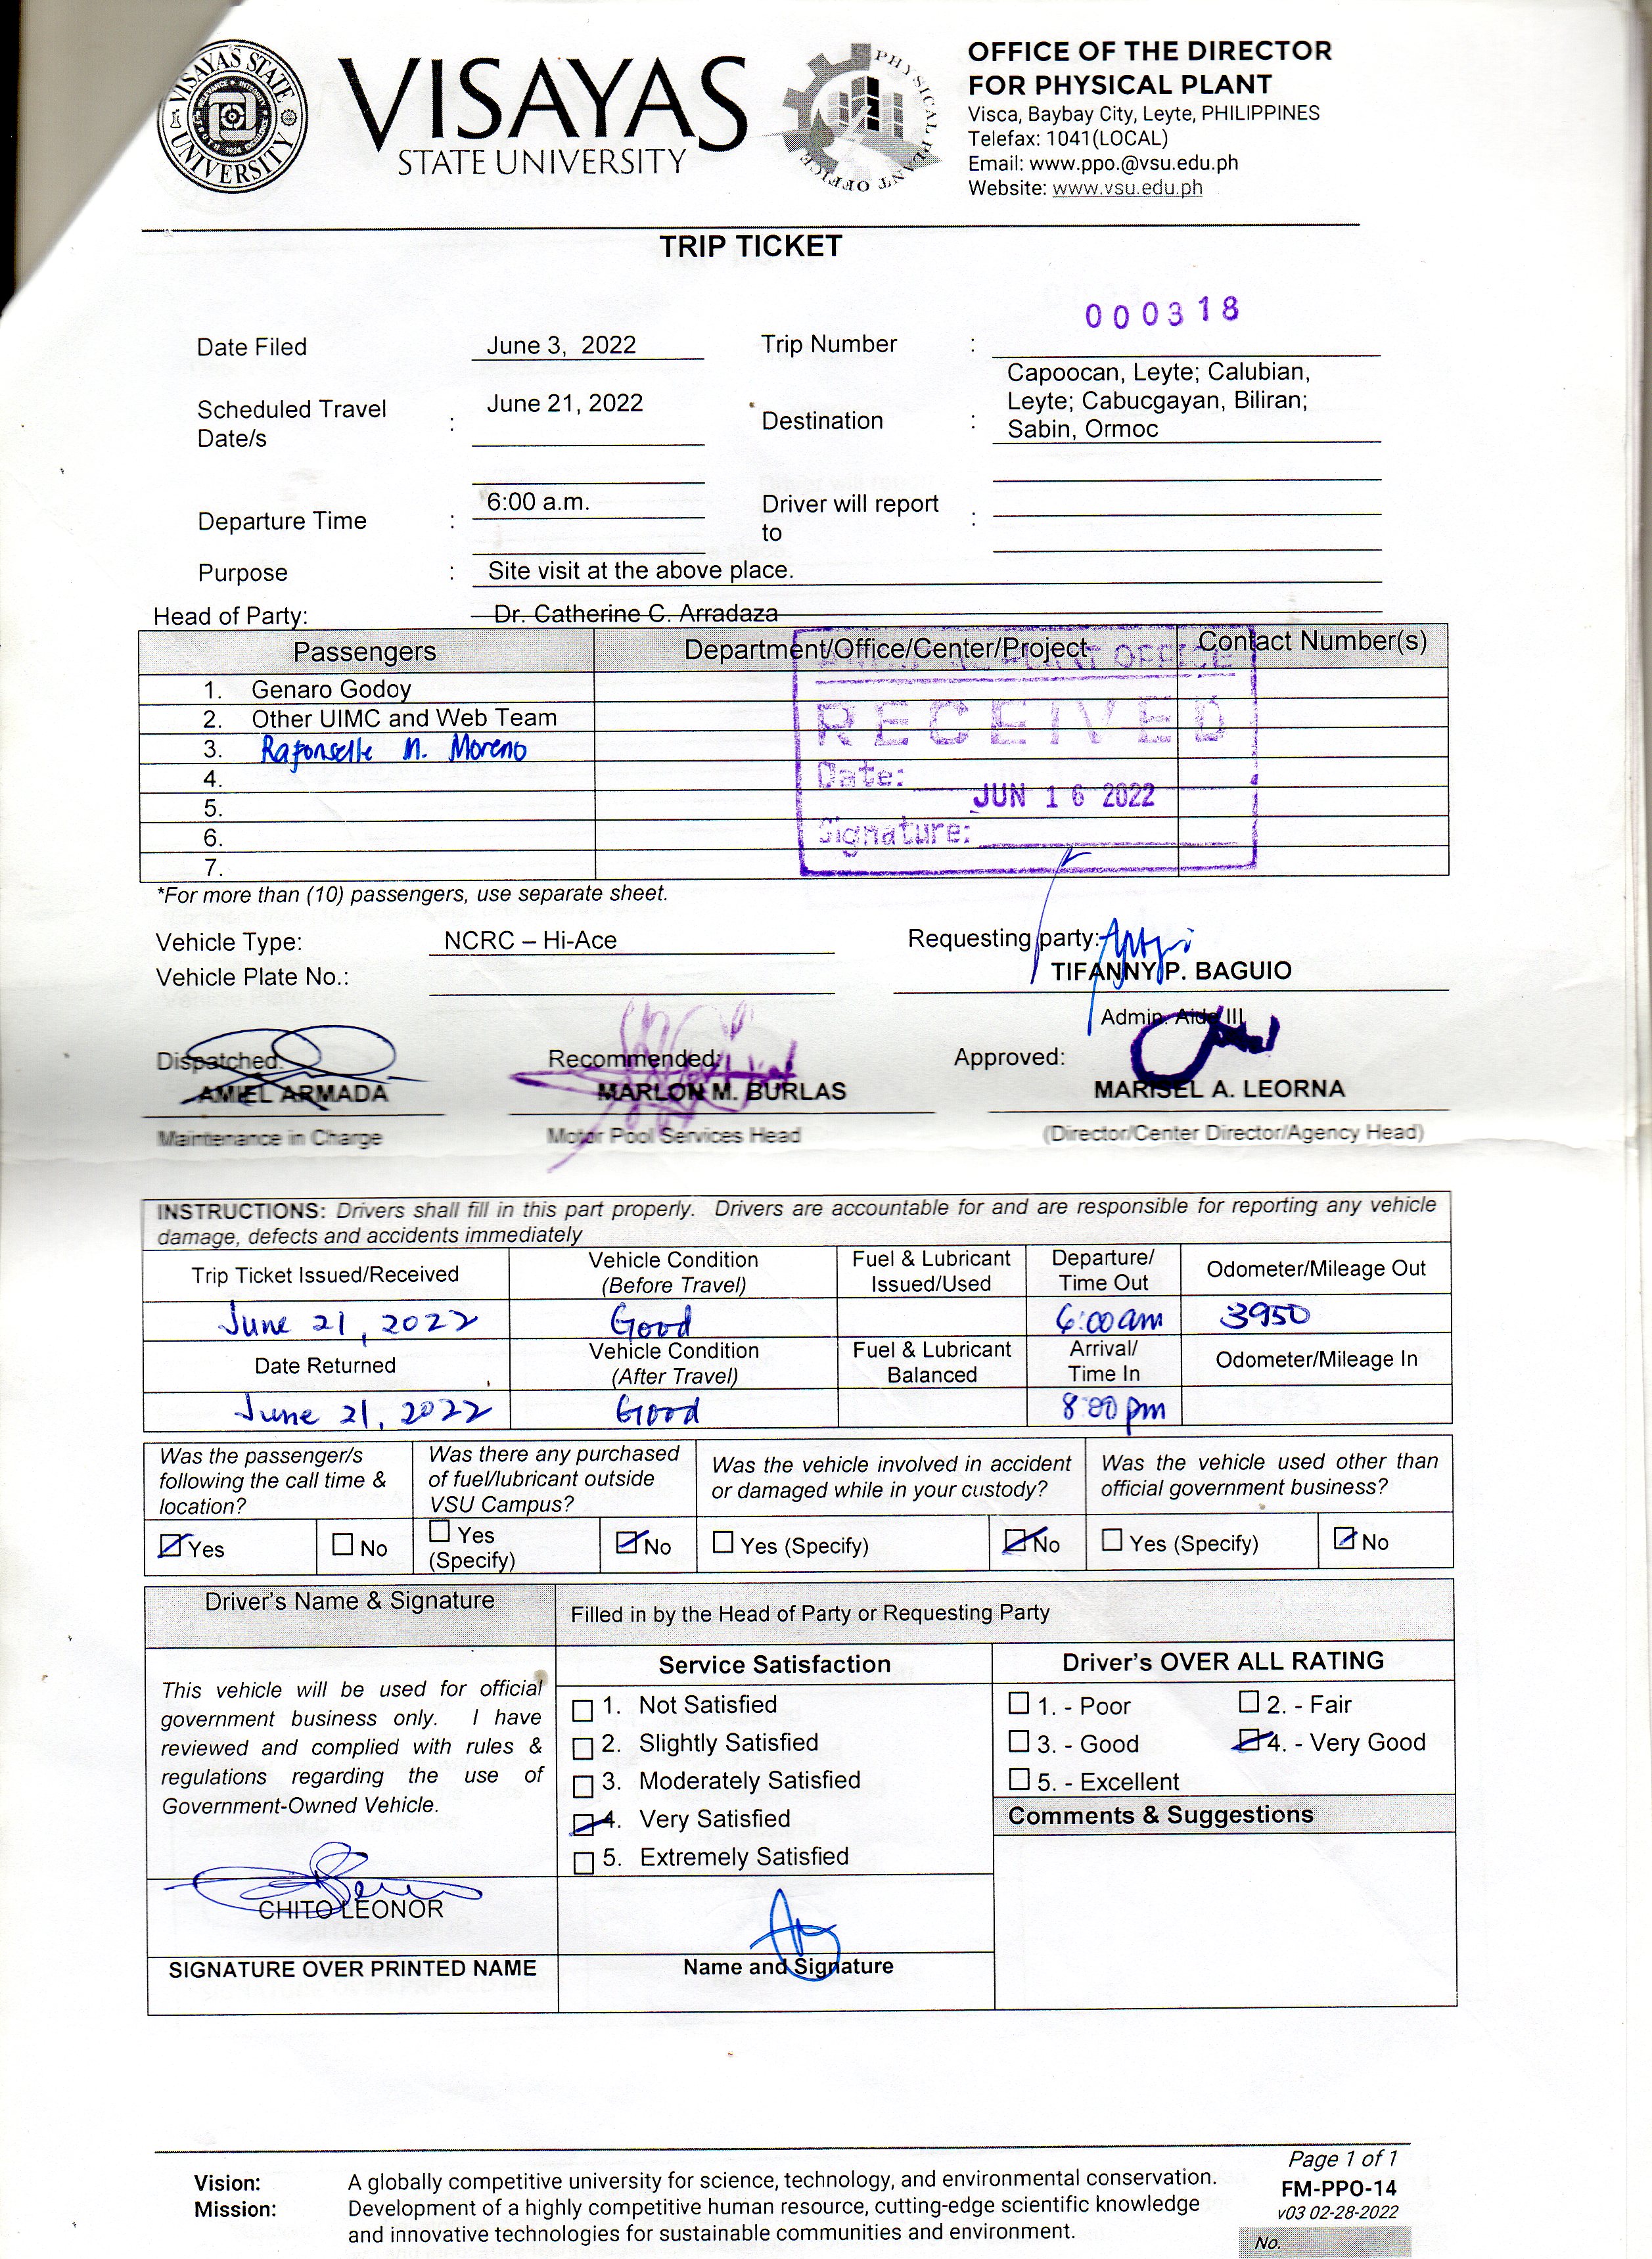 VISAYAS STATE UNIVERSITY
1924
VISAYAS
STATE UNIVERSITY
PHYSICAL PLANT OFFICE
OFFICE OF THE DIRECTOR
FOR PHYSICAL PLANT
Visca, Baybay City, Leyte, PHILIPPINES
Telefax: 1041(LOCAL)
Email: www.ppo.@vsu.edu.ph
Website: www.vsu.edu.ph
TRIP TICKET
000318
Date Filed June 3, 2022 Trip Number :
Scheduled Travel Date/s : June 21, 2022 Destination : Capoocan, Leyte; Calubian,
Leyte; Cabucgayan, Biliran;
Sabin, Ormoc
Departure Time : 6:00 a.m. Driver will report to :
Purpose : Site visit at the above place.
Head of Party: Dr. Catherine C. Arradaza
Passengers Department/Office/Center/Project Contact Number(s)
1. Genaro Godoy
2. Other UIMC and Web Team
3. Rafonselle N. Moreno
4.
5.
6.
7.
PLANT OFFICE
RECEIVED
Date: JUN 16 2022
Signature:
*For more than (10) passengers, use separate sheet.
Vehicle Type: NCRC – Hi-Ace Requesting party:
Vehicle Plate No.: TIFANNY P. BAGUIO
Admin. Aide III
Dispatched: Recommended: Approved:
AMIEL ARMADA MARLON M. BURLAS MARISEL A. LEORNA
Maintenance in Charge Motor Pool Services Head (Director/Center Director/Agency Head)
INSTRUCTIONS: Drivers shall fill in this part properly. Drivers are accountable for and are responsible for reporting any vehicle
damage, defects and accidents immediately
Trip Ticket Issued/Received Vehicle Condition (Before Travel) Fuel & Lubricant Issued/Used Departure/ Time Out Odometer/Mileage Out
June 21, 2022 Good 6:00am 3950
Date Returned Vehicle Condition (After Travel) Fuel & Lubricant Balanced Arrival/ Time In Odometer/Mileage In
June 21, 2022 Good 8:00 pm
Was the passenger/s following the call time & location? Was there any purchased of fuel/lubricant outside VSU Campus? Was the vehicle involved in accident or damaged while in your custody? Was the vehicle used other than official government business?
Yes No Yes (Specify) No Yes (Specify) No Yes (Specify) No
Driver's Name & Signature Filled in by the Head of Party or Requesting Party
This vehicle will be used for official
government business only. I have
reviewed and complied with rules &
regulations regarding the use of
Government-Owned Vehicle.
Service Satisfaction
1. Not Satisfied
2. Slightly Satisfied
3. Moderately Satisfied
4. Very Satisfied
5. Extremely Satisfied
Driver's OVER ALL RATING
1. - Poor 2. - Fair
3. - Good 4. - Very Good
5. - Excellent
Comments & Suggestions
CHITO LEONOR
SIGNATURE OVER PRINTED NAME Name and Signature
Vision: A globally competitive university for science, technology, and environmental conservation.
Mission: Development of a highly competitive human resource, cutting-edge scientific knowledge
and innovative technologies for sustainable communities and environment.
Page 1 of 1
FM-PPO-14
v03 02-28-2022
No.